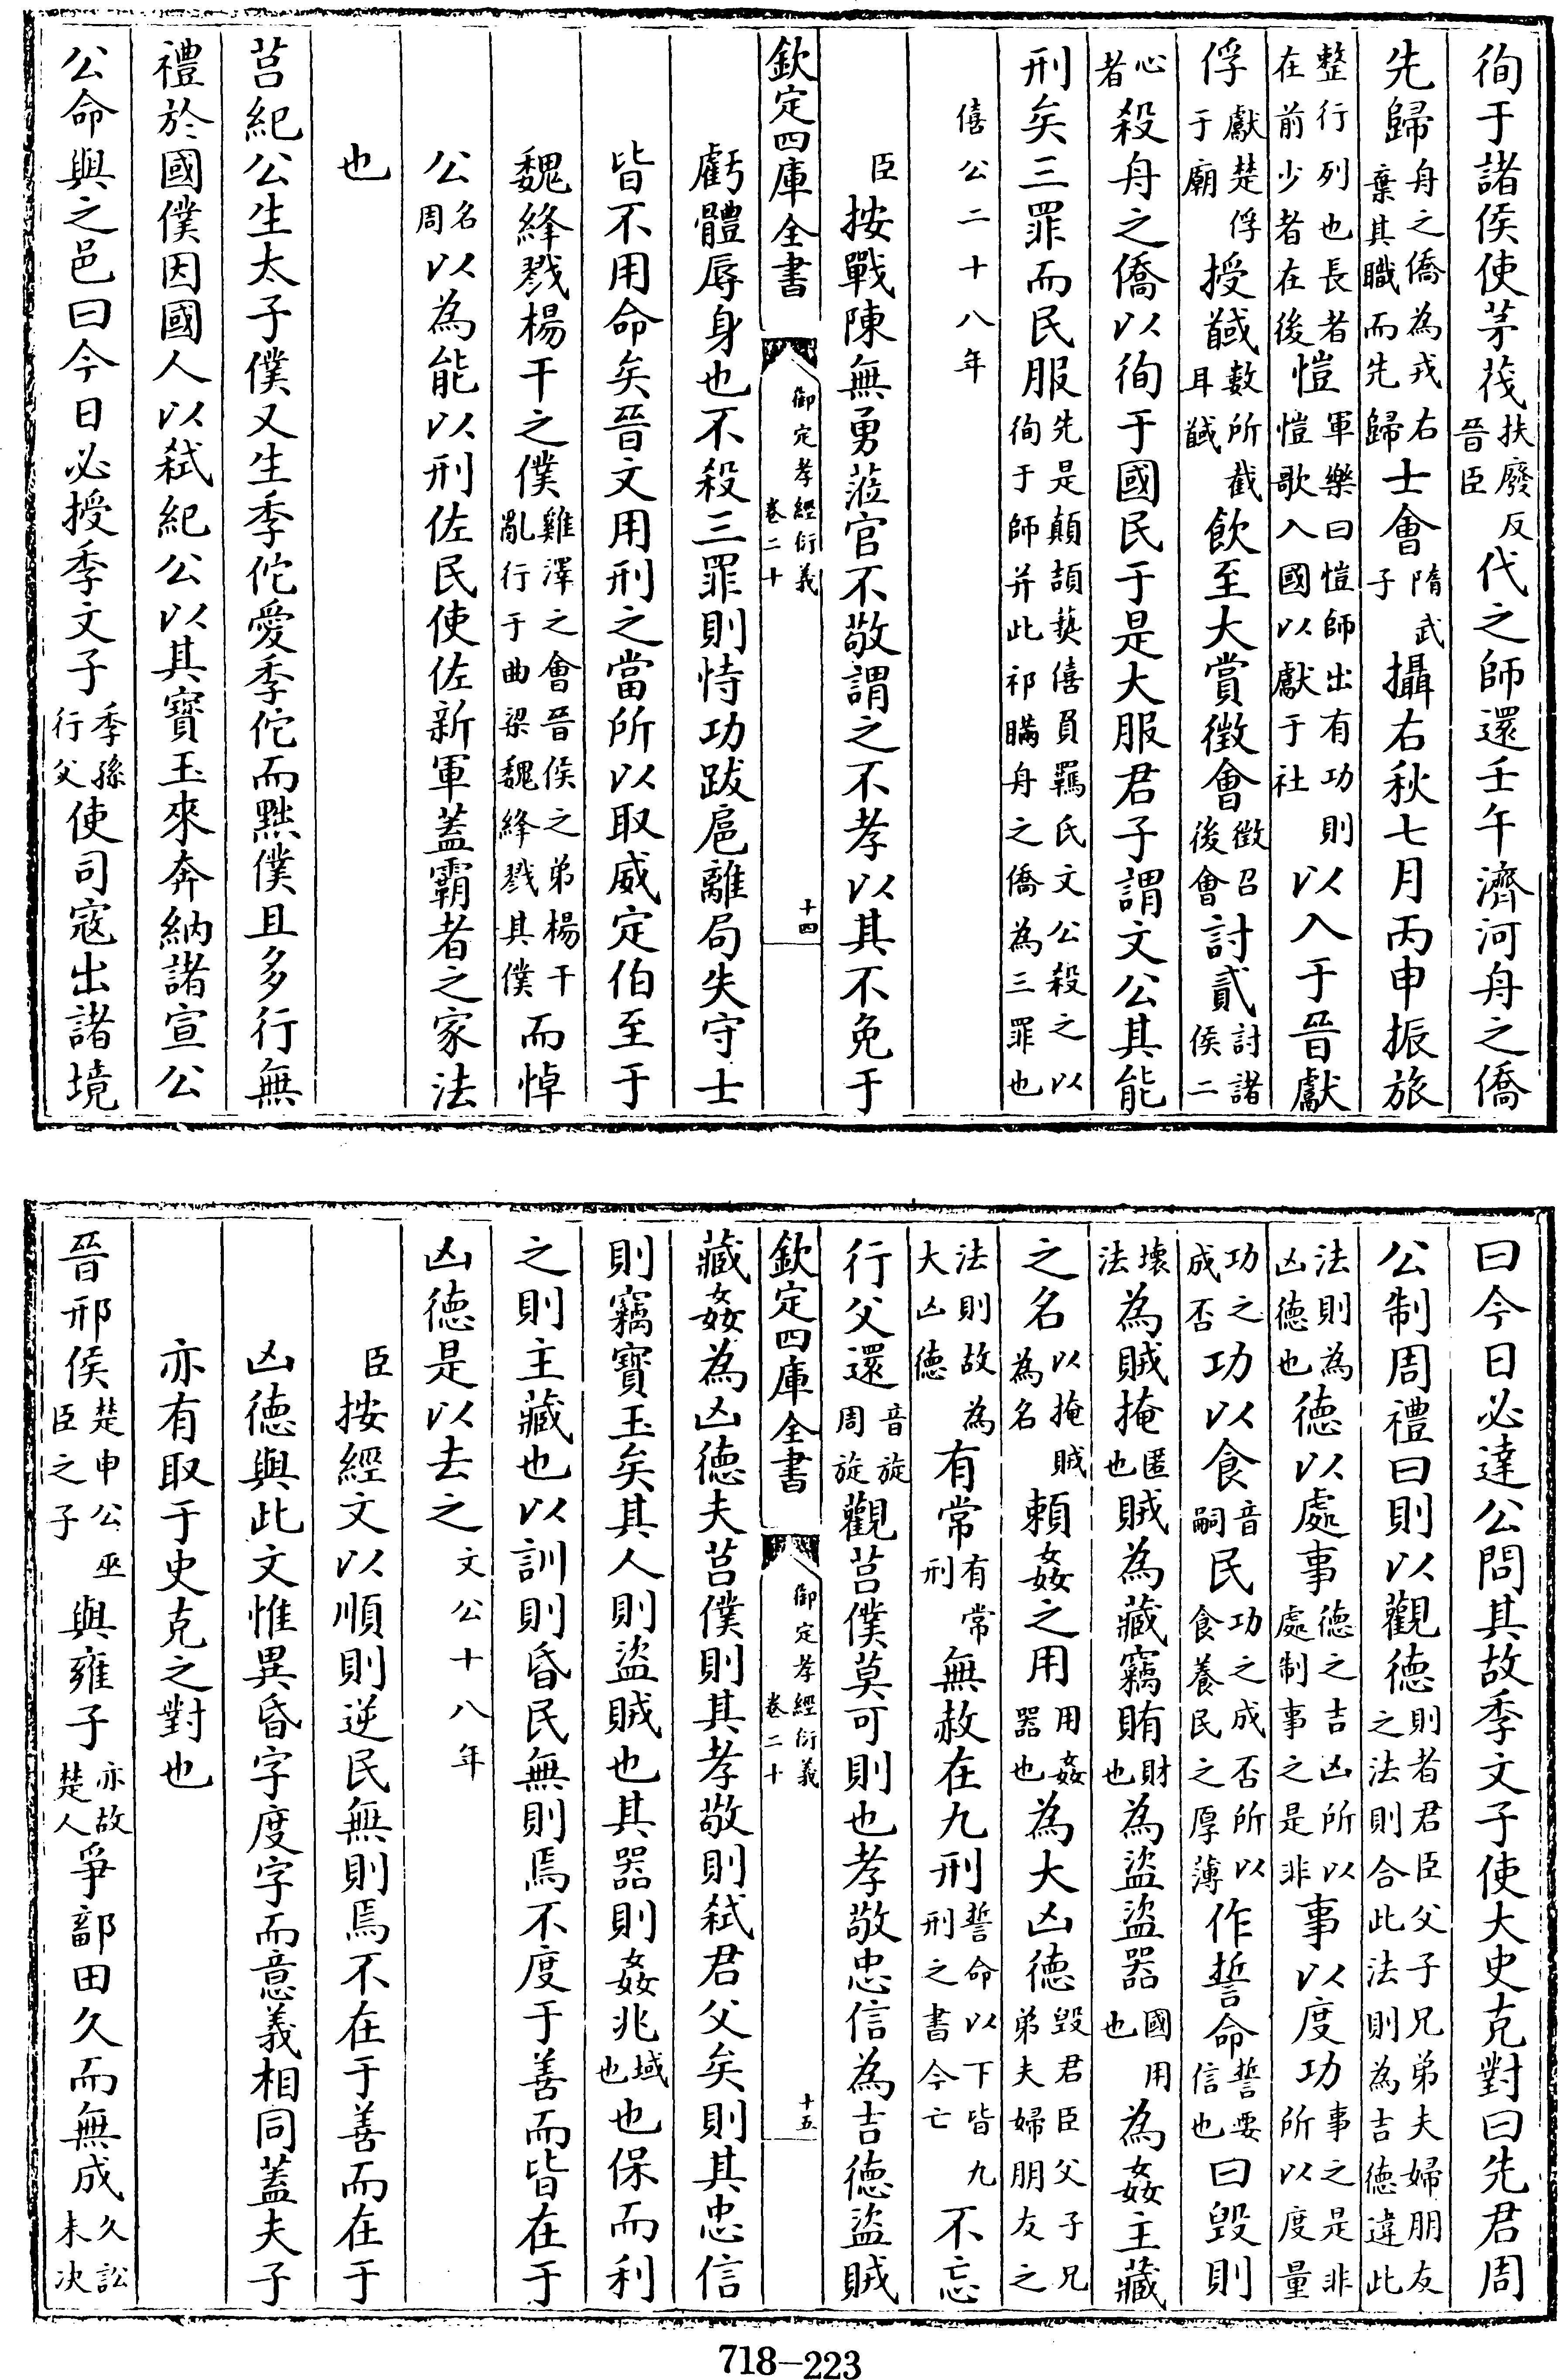 徇于諸侯使茅茷扶廢反晉臣代之師還壬午濟河舟之僑
先歸舟之僑為戎右棄其職而先歸士會隋武子攝右秋七月丙申振旅
整行列也長者在前少者在後愷軍樂曰愷師出有功則愷歌入國以獻于社以入于晉獻
俘獻楚俘于廟授馘數所截耳馘飲至大賞徵會徵召後會討貳討諸侯二
心者殺舟之僑以徇于國民于是大服君子謂文公其能
刑矣三罪而民服先是顛頡爇僖負羈氏文公殺之以徇于師并此祁瞞舟之僑為三罪也
僖公二十八年
臣按戰陳無勇蒞官不敬謂之不孝以其不免于
欽定四庫全書 御定孝經衍義 卷二十 十四
虧體辱身也不殺三罪則恃功跋扈離局失守士
皆不用命矣晉文用刑之當所以取威定伯至于
魏絳戮楊干之僕雞澤之會晉侯之弟楊干亂行于曲梁魏絳戮其僕而悼
公名周以為能以刑佐民使佐新軍蓋霸者之家法
也
莒紀公生太子僕又生季佗愛季佗而黜僕且多行無
禮於國僕因國人以弒紀公以其寶玉來奔納諸宣公
公命與之邑曰今日必授季文子季孫行父使司寇出諸境
曰今日必達公問其故季文子使大史克對曰先君周
公制周禮曰則以觀德則者君臣父子兄弟夫婦朋友之法則合此法則為吉德違此
法則為凶德也德以處事德之吉凶所以處制事之是非事以度功事之是非所以度量
功之成否功以食音嗣民功之成否所以食養民之厚薄作誓命誓要信也曰毀則
壞法為賊掩匿也賊為藏竊賄財也為盜盜器國用也為姦主藏
之名以掩賊為名賴姦之用用姦器也為大凶德毀君臣父子兄弟夫婦朋友之
法則故為大凶德有常有常刑無赦在九刑誓命以下皆九刑之書今亡不忘
行父還音旋周旋觀莒僕莫可則也孝敬忠信為吉德盜賊
欽定四庫全書 御定孝經衍義 卷二十 十五
藏姦為凶德夫莒僕則其孝敬則弒君父矣則其忠信
則竊寶玉矣其人則盜賊也其器則姦兆域也也保而利
之則主藏也以訓則昏民無則焉不度于善而皆在于
凶德是以去之文公十八年
臣按經文以順則逆民無則焉不在于善而在于
凶德與此文惟異昏字度字而意義相同蓋夫子
亦有取于史克之對也
晉邢侯楚申公巫臣之子與雍子亦故楚人爭鄐田久而無成久訟未決
718-223